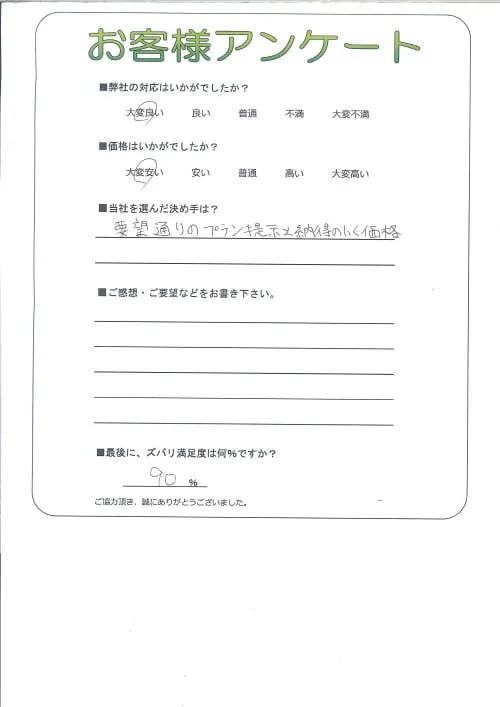 お客様アンケート
■弊社の対応はいかがでしたか？
大変良い 良い 普通 不満 大変不満
■価格はいかがでしたか？
大変安い 安い 普通 高い 大変高い
■当社を選んだ決め手は？
要望通りのプラン提示と納得のいく価格
■ご感想・ご要望などをお書き下さい。
■最後に、ズバリ満足度は何%ですか？
90 %
ご協力頂き、誠にありがとうございました。